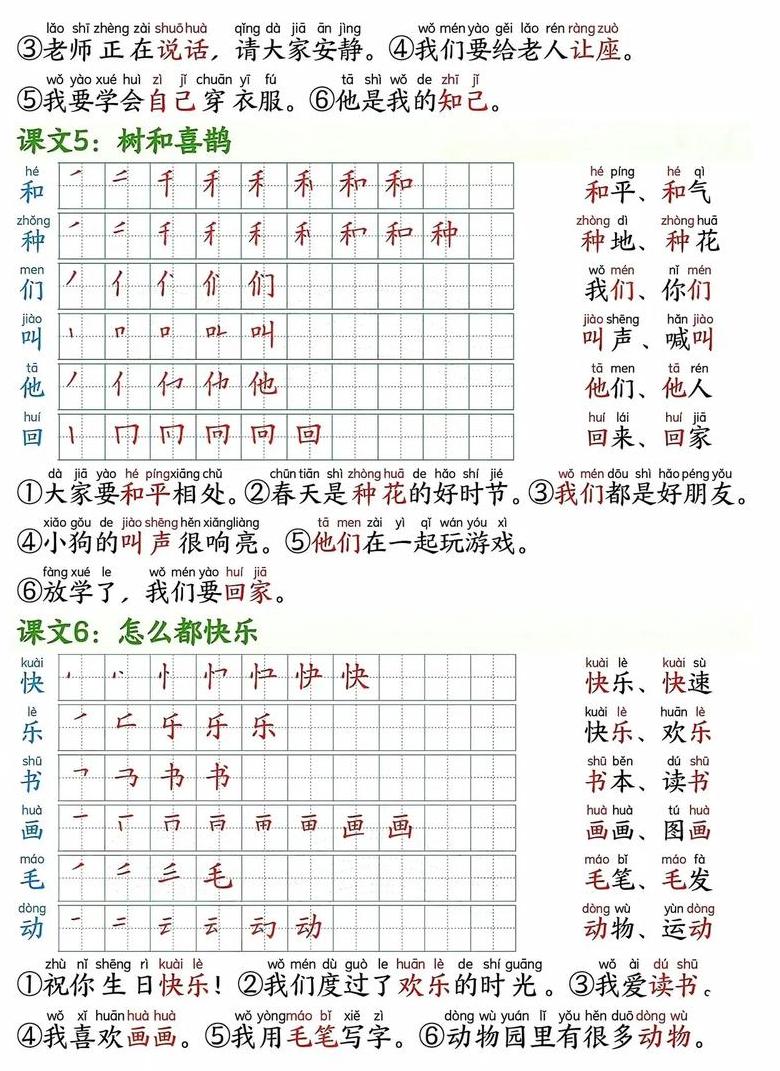 lǎo shī zhèng zài shuō huà qǐng dà jiā ān jìng wǒ mén yào gěi lǎo rén ràng zuò
③老师正在说话，请大家安静。④我们要给老人让座。
wǒ yào xué huì zì jǐ chuān yī fú tā shì wǒ de zhī jǐ
⑤我要学会自己穿衣服。⑥他是我的知己。
课文5：树和喜鹊
hé hé píng hé qì
和 和平、和气
zhǒng zhòng dì zhòng huā
种 种地、种花
men wǒ mén nǐ mén
们 我们、你们
jiào jiào shēng hǎn jiào
叫 叫声、喊叫
tā tā men tā rén
他 他们、他人
huí huí lái huí jiā
回 回来、回家
dà jiā yào hé píng xiāng chǔ chūn tiān shì zhòng huā de hǎo shí jié wǒ mén dōu shì hǎo péng yǒu
①大家要和平相处。②春天是种花的好时节。③我们都是好朋友。
xiǎo gǒu de jiào shēng hěn xiǎng liàng tā men zài yì qǐ wán yóu xì
④小狗的叫声很响亮。⑤他们在一起玩游戏。
fàng xué le wǒ mén yào huí jiā
⑥放学了，我们要回家。
课文6：怎么都快乐
kuài kuài lè kuài sù
快 快乐、快速
lè kuài lè huān lè
乐 快乐、欢乐
shū shū běn dú shū
书 书本、读书
huà huà huà tú huà
画 画画、图画
máo máo bǐ máo fà
毛 毛笔、毛发
dòng dòng wù yùn dòng
动 动物、运动
zhù nǐ shēng rì kuài lè wǒ mén dù guò le huān lè de shí guāng wǒ ài dú shū
①祝你生日快乐！②我们度过了欢乐的时光。③我爱读书。
wǒ xǐ huān huà huà wǒ yòng máo bǐ xiě zì dòng wù yuán lǐ yǒu hěn duō dòng wù
④我喜欢画画。⑤我用毛笔写字。⑥动物园里有很多动物。